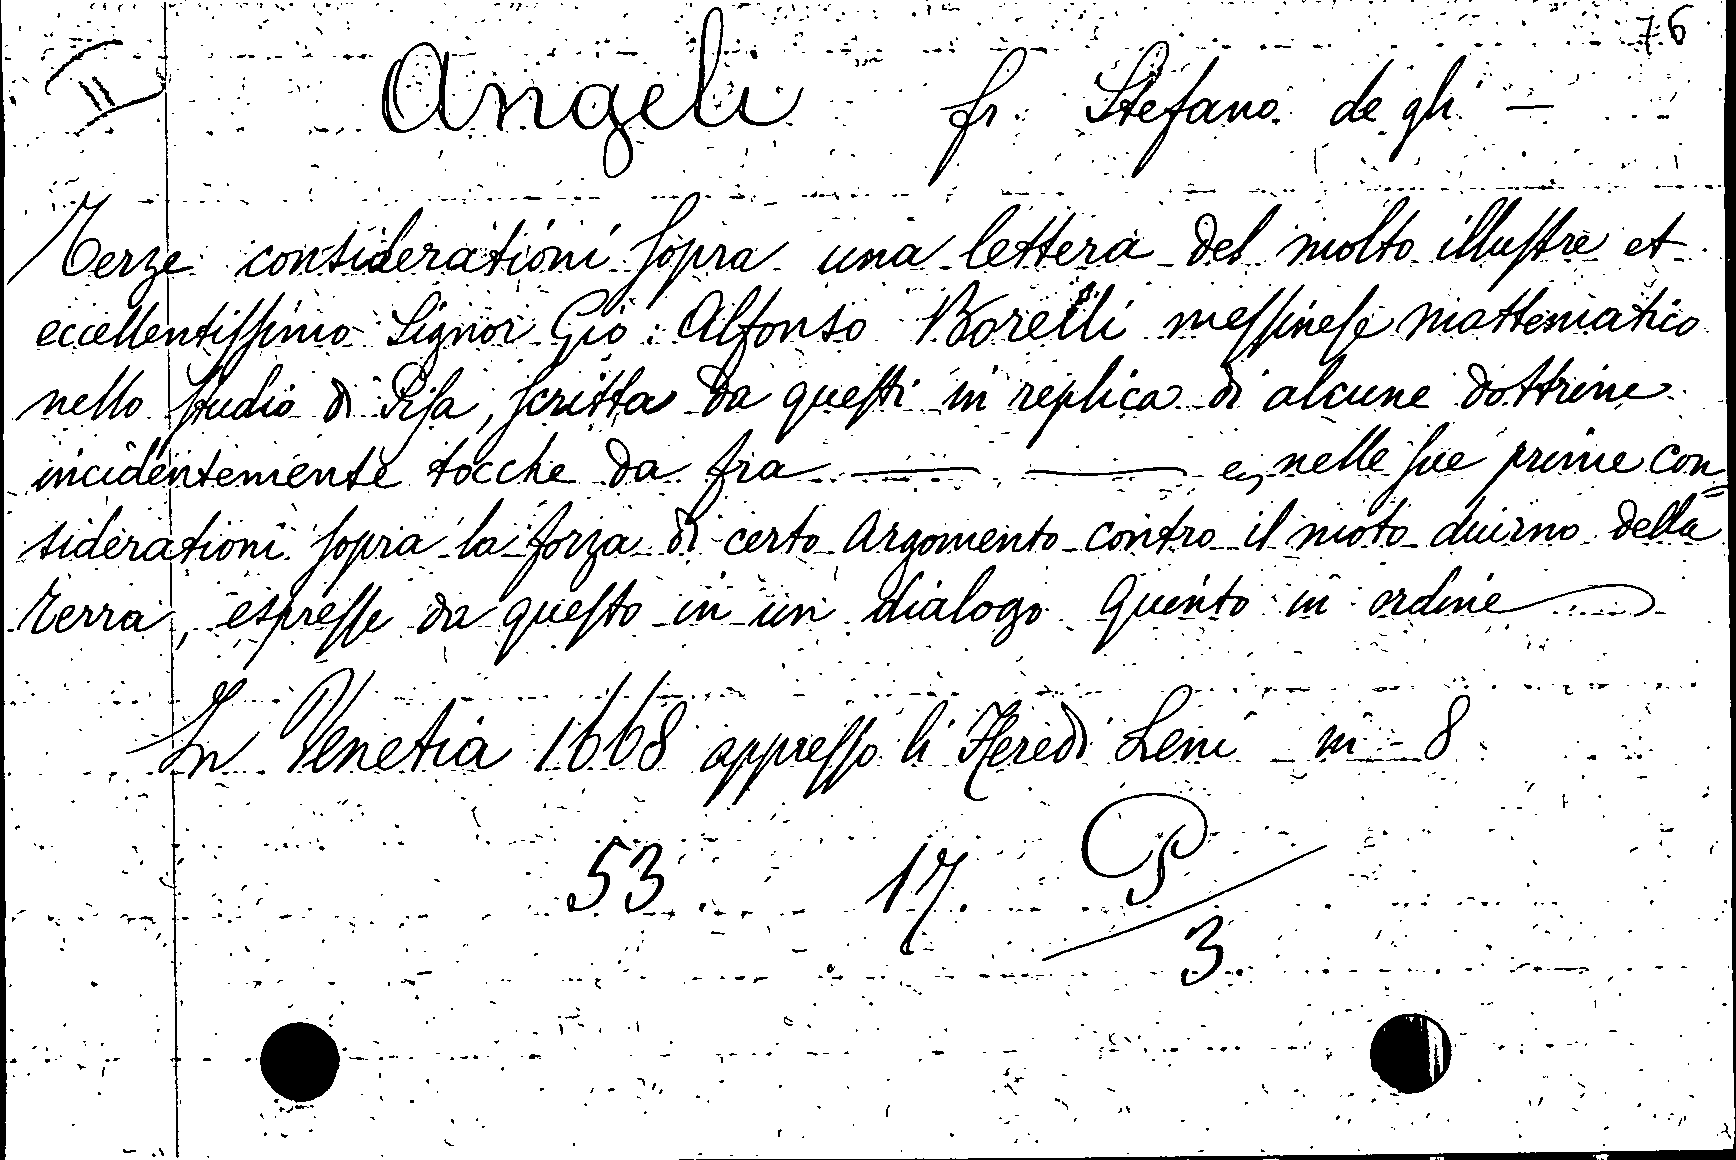 76
Angeli fr. Stefano degli —
Terze considerationi sopra una lettera del molto illustre et
eccellentissimo Signor Gio: Alfonso Borelli messinese mattematico
nello studio di Pisa, scritta da questi in replica di alcune dottrine
incidentemente tocche da fra —— —— e, nelle sue prime con=
siderationi sopra la forza di certo Argomento contro il moto diurno della
terra, espresse da questo in un dialogo quinto in ordine
In Venetia 1668 appresso li Heredi Leni in 8
53 17. P
3.